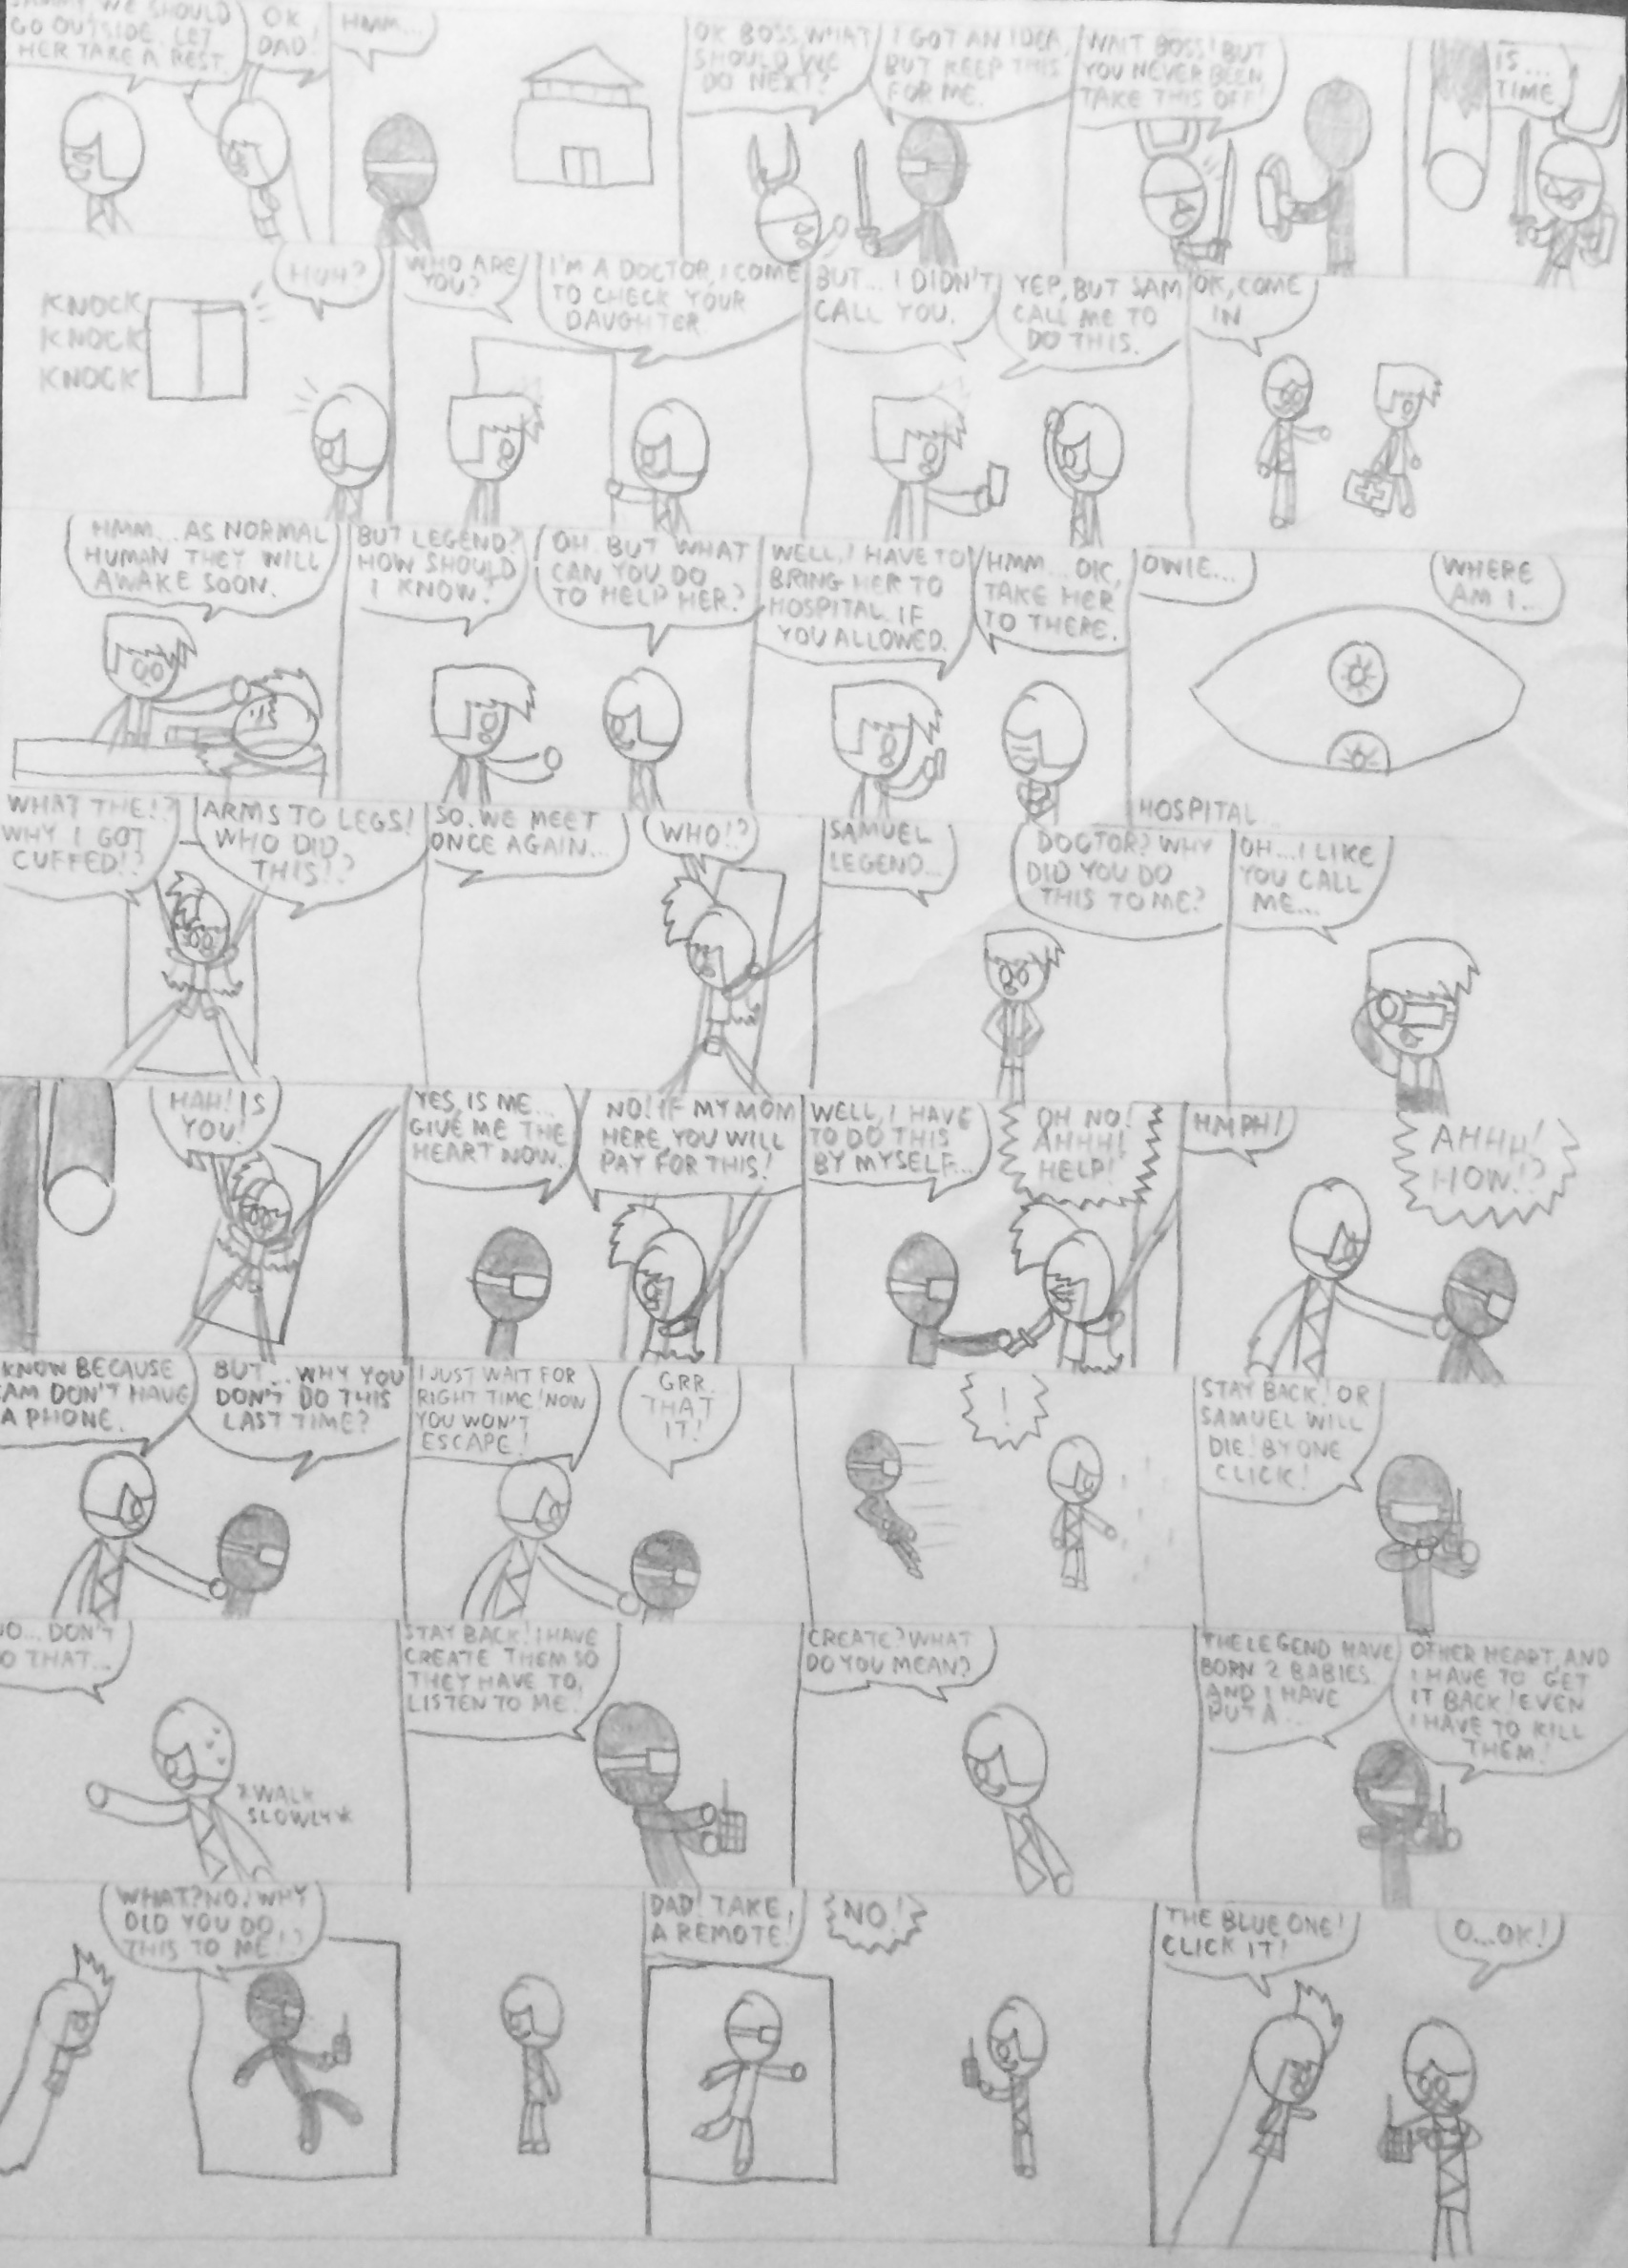 WE SHOULD
GO OUTSIDE. LET
HER TAKE A REST.
OK
DAD!
HMM...
OK BOSS, WHAT
SHOULD WE
DO NEXT?
I GOT AN IDEA,
BUT KEEP THIS
FOR ME.
WAIT BOSS! BUT
YOU NEVER BEEN
TAKE THIS OFF!
IS...
TIME
KNOCK
KNOCK
KNOCK
HUH?
WHO ARE
YOU?
I'M A DOCTOR, I COME
TO CHECK YOUR
DAUGHTER
BUT... I DIDN'T
CALL YOU.
YEP, BUT SAM
CALL ME TO
DO THIS.
OK, COME
IN
HMM... AS NORMAL
HUMAN THEY WILL
AWAKE SOON.
BUT LEGEND?
HOW SHOULD
I KNOW?
OH. BUT WHAT
CAN YOU DO
TO HELP HER?
WELL, I HAVE TO
BRING HER TO
HOSPITAL. IF
YOU ALLOWED.
HMM... OK,
TAKE HER
TO THERE.
OWIE...
WHERE
AM I...
HOSPITAL...
WHAT THE!?
WHY I GOT
CUFFED!?
ARMS TO LEGS!
WHO DID
THIS!?
SO. WE MEET
ONCE AGAIN...
WHO!?
SAMUEL
LEGEND...
DOCTOR? WHY
DID YOU DO
THIS TO ME?
OH... I LIKE
YOU CALL
ME...
HAH! IS
YOU!
YES, IS ME...
GIVE ME THE
HEART NOW.
NO! IF MY MOM
HERE, YOU WILL
PAY FOR THIS!
WELL, I HAVE
TO DO THIS
BY MYSELF...
OH NO!
AHHH!
HELP!
HMPH!
AHHH!
HOW!?
KNOW BECAUSE
AM DON'T HAVE
A PHONE.
BUT... WHY YOU
DON'T DO THIS
LAST TIME?
I JUST WAIT FOR
RIGHT TIME! NOW
YOU WON'T
ESCAPE!
GRR.
THAT
IT!
!
STAY BACK! OR
SAMUEL WILL
DIE! BY ONE
CLICK!
NO... DON'T
DO THAT...
*WALK
SLOWLY*
STAY BACK! I HAVE
CREATE THEM SO
THEY HAVE TO
LISTEN TO ME!
CREATE? WHAT
DO YOU MEAN?
THE LEGEND HAVE
BORN 2 BABIES.
AND I HAVE
PUT A...
OTHER HEART, AND
I HAVE TO GET
IT BACK! EVEN
I HAVE TO KILL
THEM!
WHAT? NO! WHY
DID YOU DO
THIS TO ME!?
DAD! TAKE
A REMOTE!
NO!
THE BLUE ONE!
CLICK IT!
O...OK!